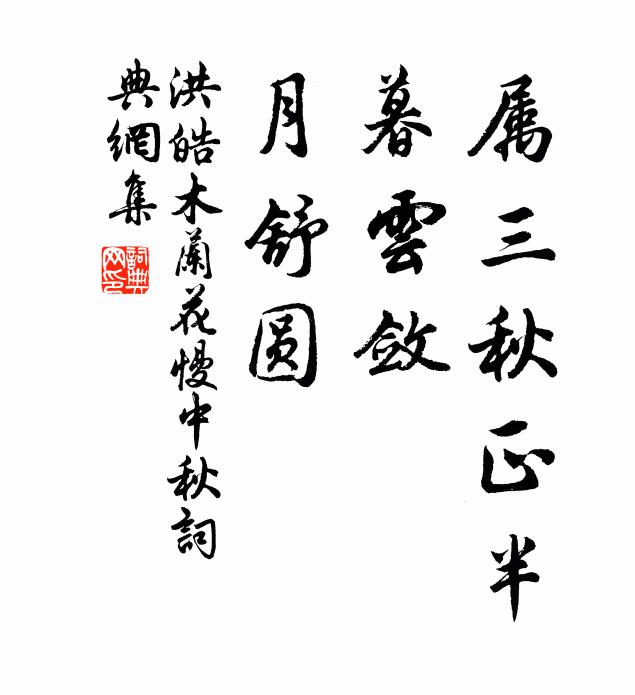 属三秋正半
暮雲斂
月舒圆
洪皓木蘭花慢中秋詞
典網集
詞典网印